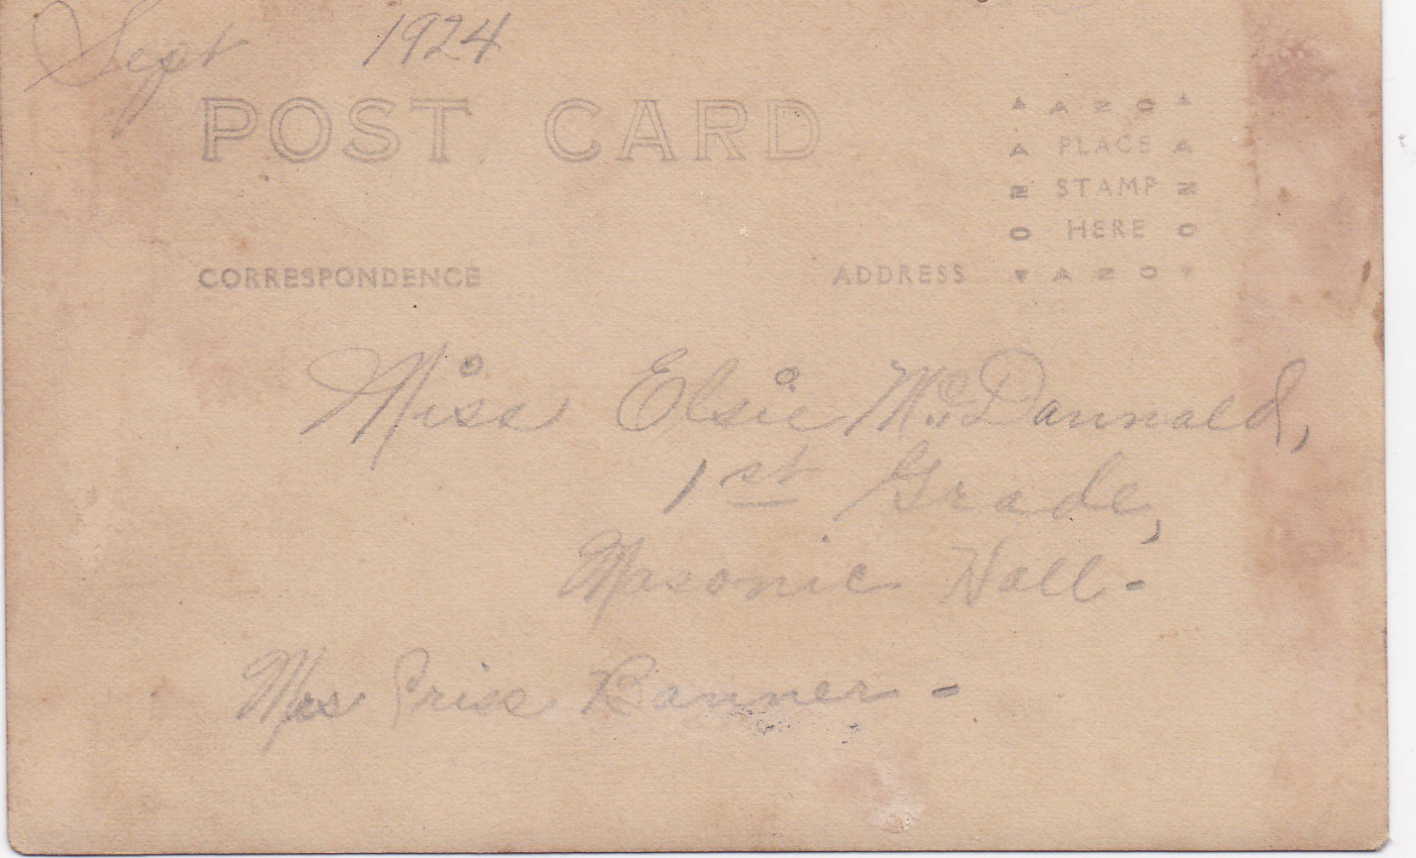 Sept 1924
POST CARD
AZO
PLACE
STAMP
HERE
AZO
AZO
AZO
CORRESPONDENCE
ADDRESS
Miss Elsie McDannald,
1st Grade,
Masonic Hall -
Mrs Banner -